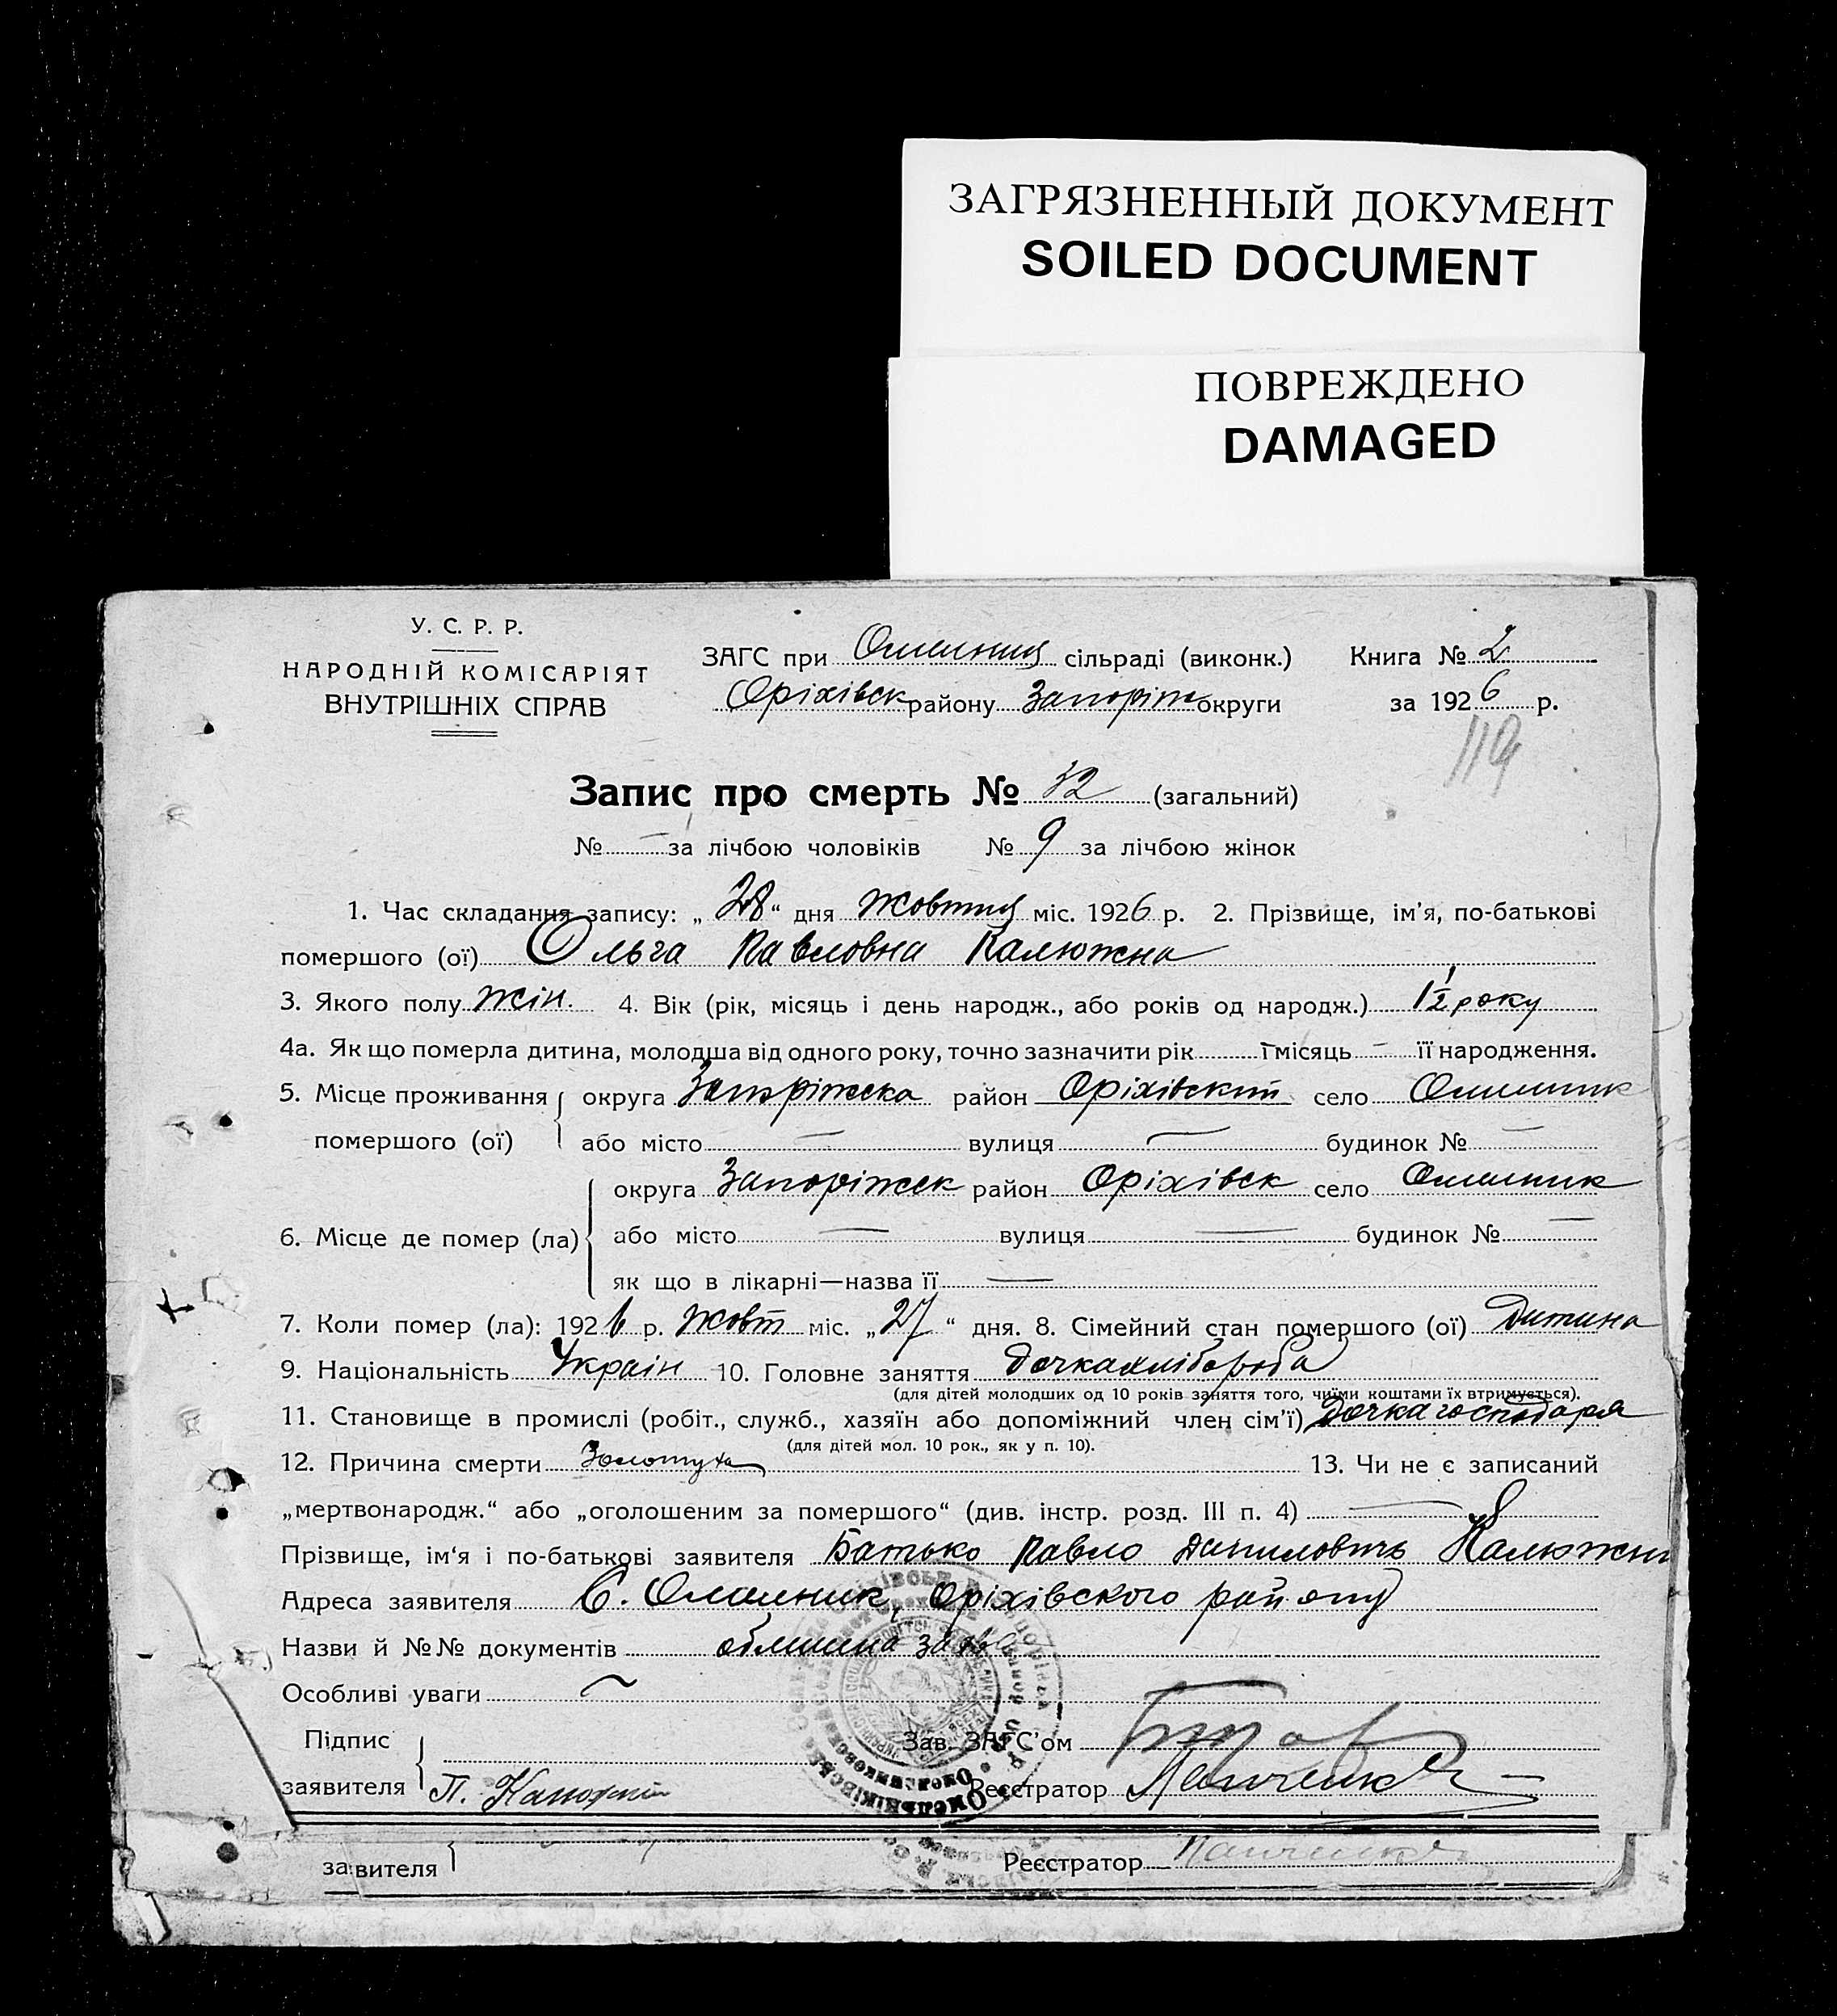 ЗАГРЯЗНЕННЫЙ ДОКУМЕНТ
SOILED DOCUMENT
ПОВРЕЖДЕНО
DAMAGED
У. С. Р. Р.
НАРОДНІЙ КОМІСАРІЯТ
ВНУТРІШНІХ СПРАВ
ЗАГС при сільраді (виконк.) Книга № 2
Оріхівск району Запоріж округи за 1926 р.
119
Запис про смерть № 32 (загальний)
№ — за лічбою чоловіків № 9 за лічбою жінок
1. Час складання запису: „28“ дня Жовтня міс. 1926 р. 2. Прізвище, ім'я, по-батькові
помершого (ої) Ольга Павловна Калюжна
3. Якого полу жін. 4. Вік (рік, місяць і день народж., або років од народж.) 1½ року
4а. Як що померла дитина, молодша від одного року, точно зазначити рік і місяць — її народження.
5. Місце проживання округа Запоріжска район Оріхівский село Омелник
помершого (ої) або місто — вулиця — будинок № —
округа Запоріжск район Оріхівск село Омелник
6. Місце де помер (ла) або місто — вулиця — будинок № —
як що в лікарні—назва її —
7. Коли помер (ла): 1926 р. Жовт міс. „27“ дня. 8. Сімейний стан помершого (ої) Дитина
9. Національність Украін 10. Головне заняття Дочка хлібороба
(для дітей молодших од 10 років заняття того, чиїми коштами їх втримується).
11. Становище в промислі (робіт., служб., хазяїн або допоміжний член сім'ї) Дочка господаря
(для дітей мол. 10 рок., як у п. 10).
12. Причина смерти Золотуха 13. Чи не є записаний
„мертвонародж.“ або „оголошеним за помершого“ (див. інстр. розд. III п. 4) —
Прізвище, ім'я і по-батькові заявителя Батько Павло Данилович Калюжни
Адреса заявителя С. Омелник, Оріхівского району
Назви й №№ документів
Особливі уваги ~
Підпис
заявителя
Зав. ЗАГС'ом
Реєстратор Панченко
заявителя Реєстратор Панченко